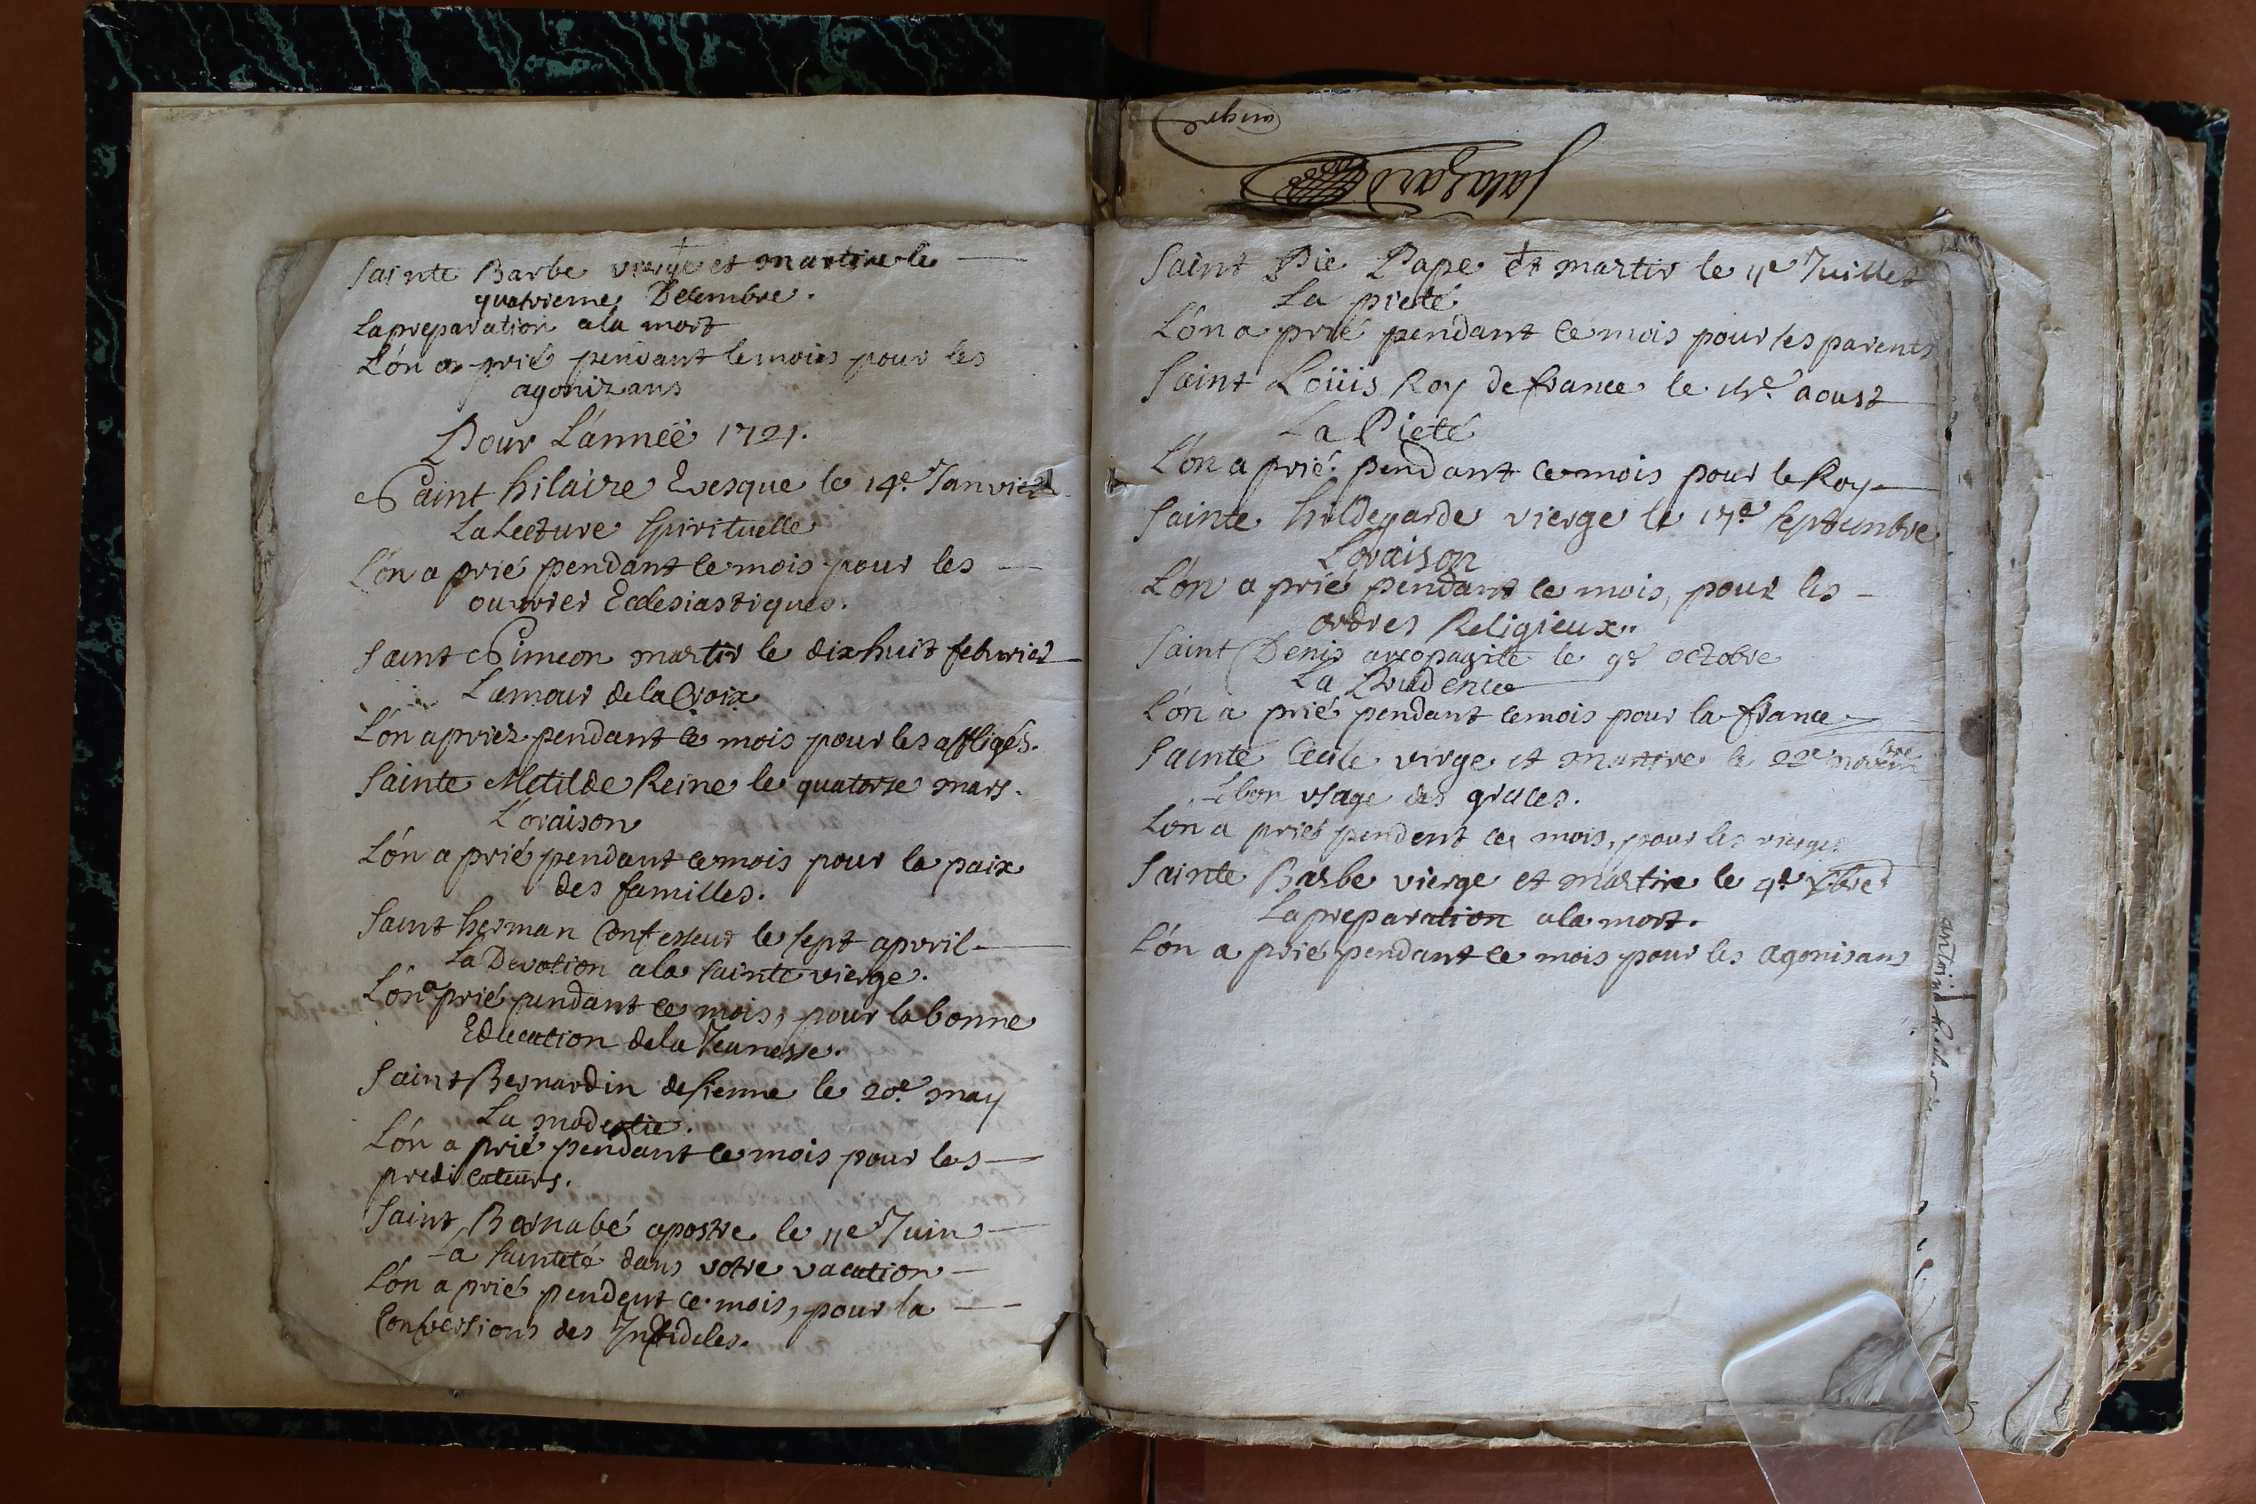 Sainte Barbe vierge et martire le
quatrieme Decembre.
La preparation a la mort
L'on a prié pendant le mois pour les
agonizans
Pour L'année 1721.
Saint hilaire Evesque le 14e. Janvier
La Lecture Spirituelle
L'on a prié pendant ce mois pour les
ouvrier Ecclesiastiques.
Saint Simeon martir le dixhuit febvrier
L'amour de la Croix
L'on a priez pendant ce mois pour les affligés.
Sainte Metilde Reine le quatorse mars.
L'oraison
L'on a prié pendant ce mois pour la paix
des familles.
Saint herman Confesseur le sept apvril
La Devotion a la sainte vierge.
L'on a prié pendant ce mois, pour la bonne
Education de la Jeunesse.
Saint Bernardin de sienne le 20e. may
La modestie.
L'on a prié pendant ce mois pour les
predicateurs.
Saint Barnabé apostre le 11e Juin
La sainteté dans votre vacation
L'on a prié pendent ce mois, pour la
Conversions des Infideles.
Salazard
Saint Pie Pape et martir le 11e Juillet
La pieté
L'on a prié pendant ce mois pour les parents
Saint Loüis Roy de france le aoust
La Pieté
L'on a prié pendant ce mois pour le Roy
Sainte hildegarde vierge le 17e septembre
L'oraison
L'on a prié pendant ce mois, pour les
ordres Religieux..
Saint Denis areopagite le 9e octobre
La Prudence
L'on a prié pendant ce mois pour la france
Sainte Cecile virge et martire le 22e novembre
Le bon usage des graces.
L'on a prié pendent ce mois, pour les vierges
Sainte Barbe vierge et martire le 4e Xbre
La preparation a la mort.
L'on a prié pendant ce mois pour les agonisans